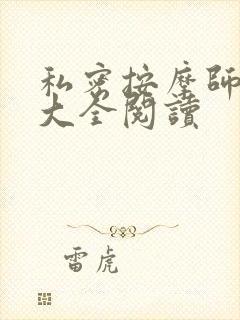 私密按摩師
大全閱讀
雷虎